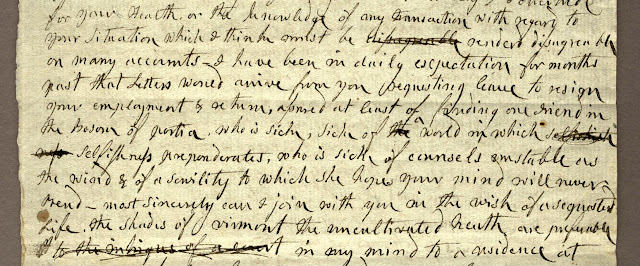 for your Health, or the knowledge of any transaction with regard to
your situation which I think must be disagreeable renderd disagreable
on many accounts – I have been in daily expectation for months
past that Letters would arrive from you requesting leave to resign
your employment & return, assured at least of finding one Friend in
the bosom of portia. who is sick, sick of the world in which selfish
selfishness preponderates, who is sick of counsels unstable as
the wind & of a servility to which she hopes your mind will never
bend – most sincerely can I join with you in the wish of a sequesterd
Life, the shades of virmont the uncultivated Heath are preferable
to the intrigues of a court in my mind to a residence at